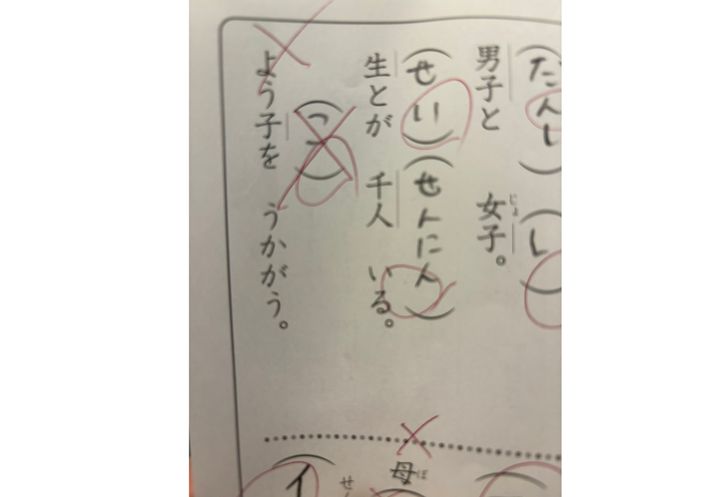 だんし
し
男子と　女子。
じょ
せい
せんにん
生とが　千人　いる。
こ
よう子を　うかがう。
母
ぼ
イ
せ